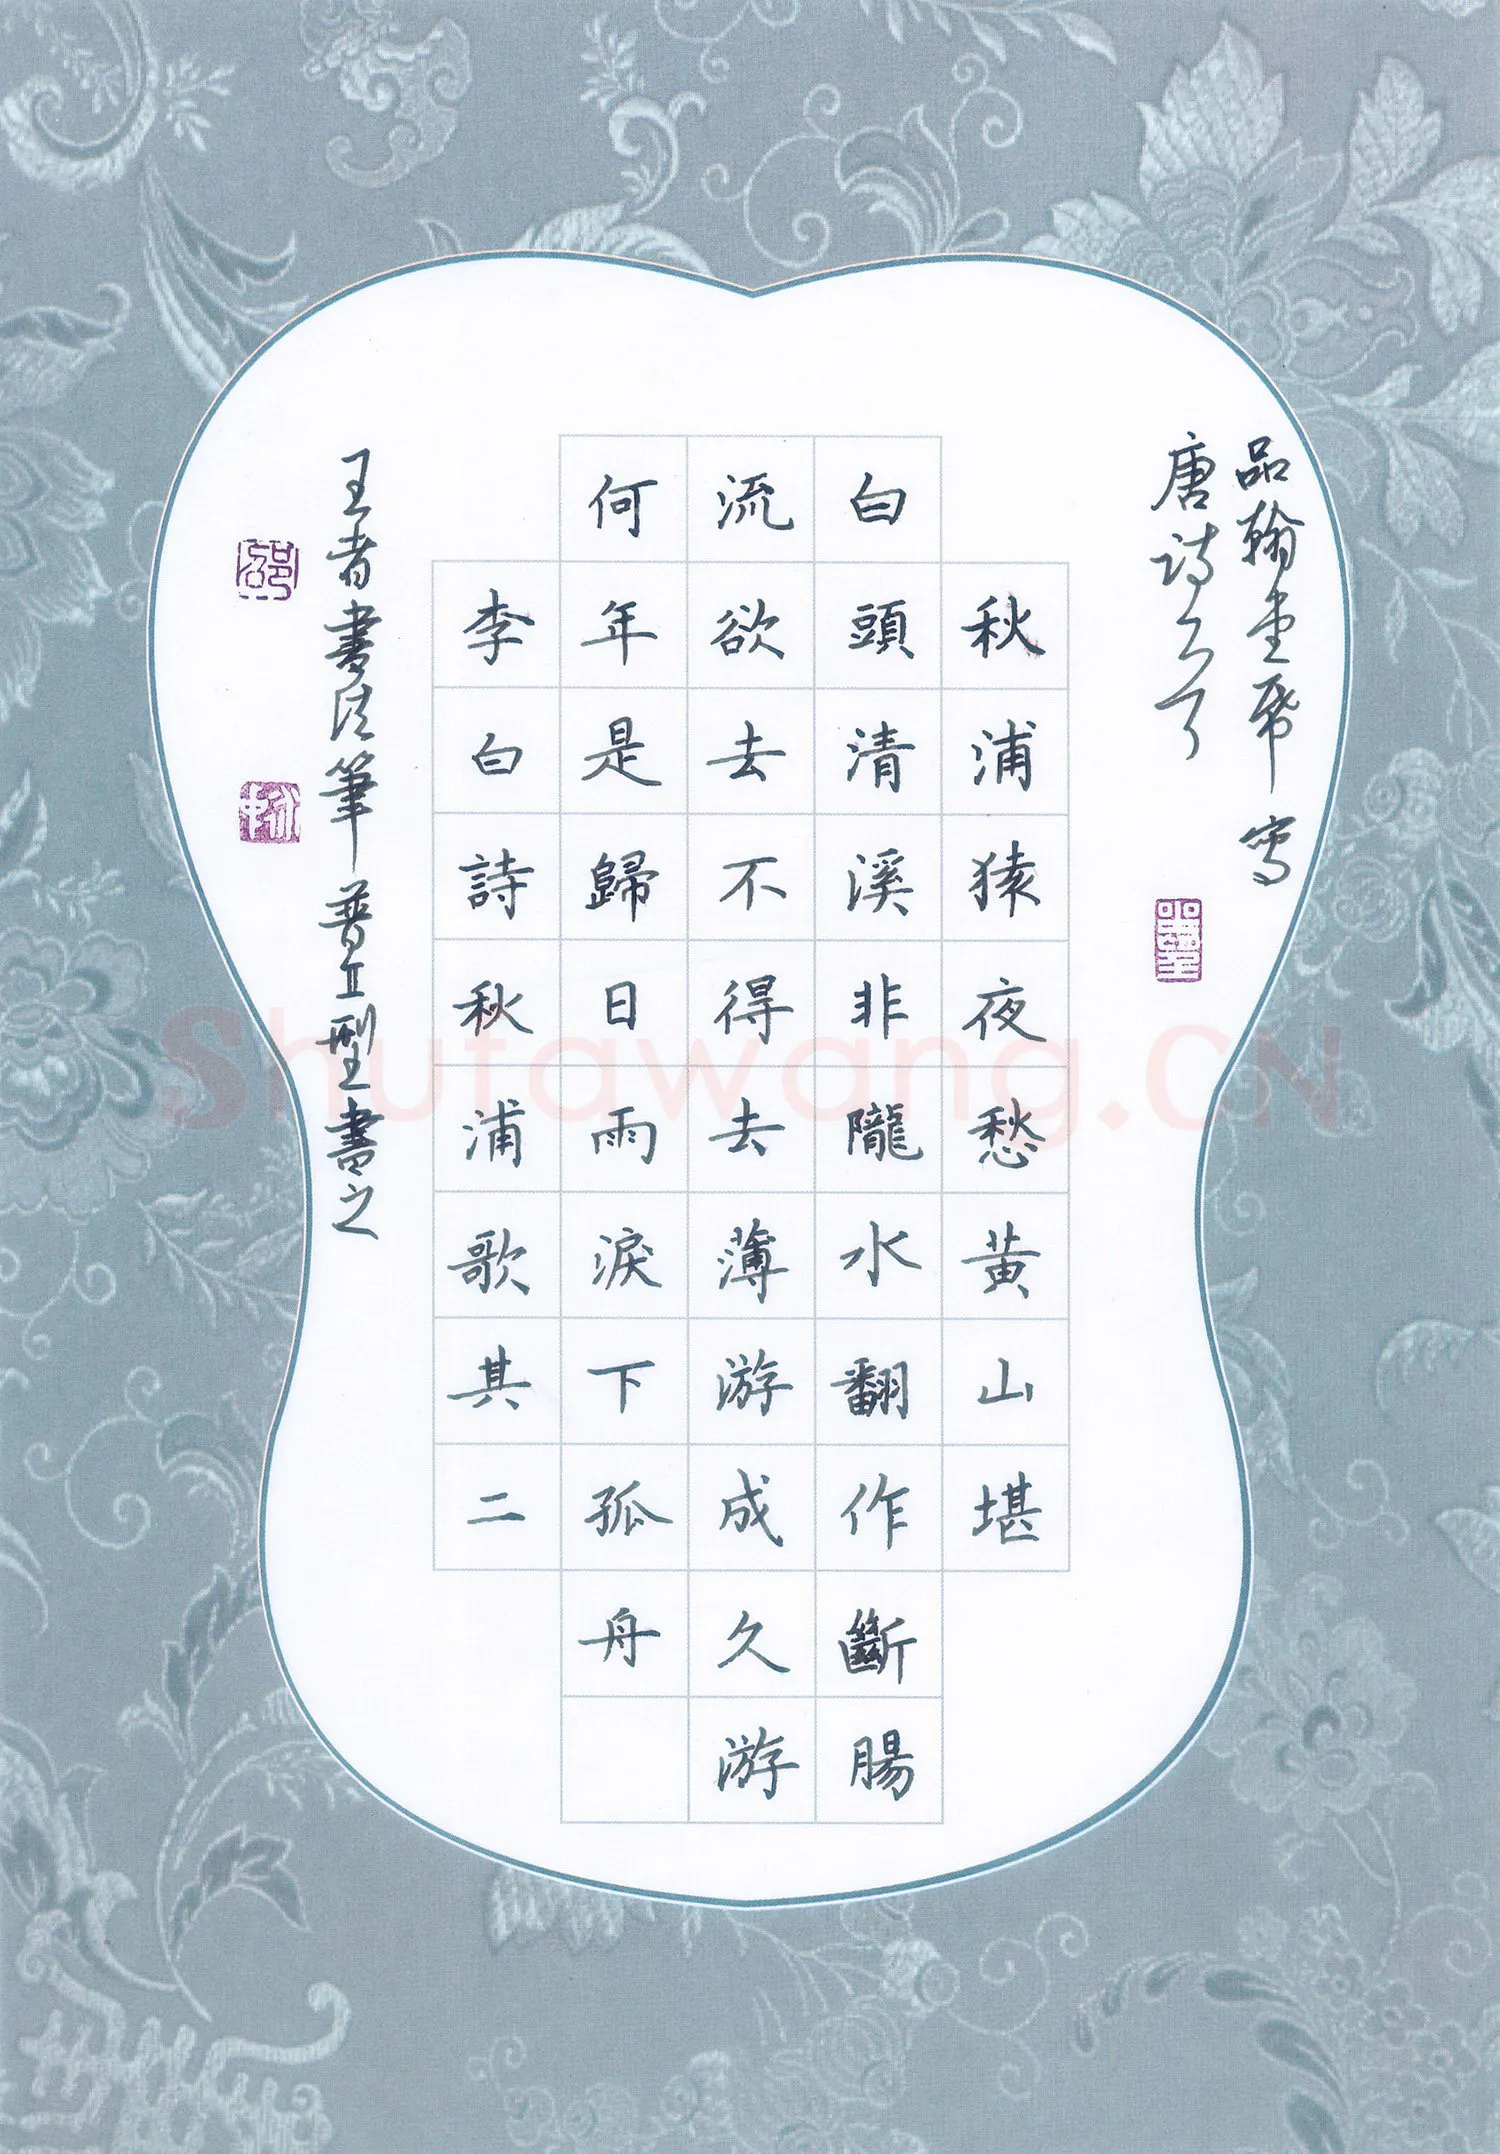 品翰堂 寫
唐诗
秋浦猿夜愁黄山堪
白頭清溪非隴水翻作斷腸
流欲去不得去薄游成久游
何年是歸日雨淚下孤舟
李白詩秋浦歌其二
王者書法筆普II型書之
Shufawang.CN